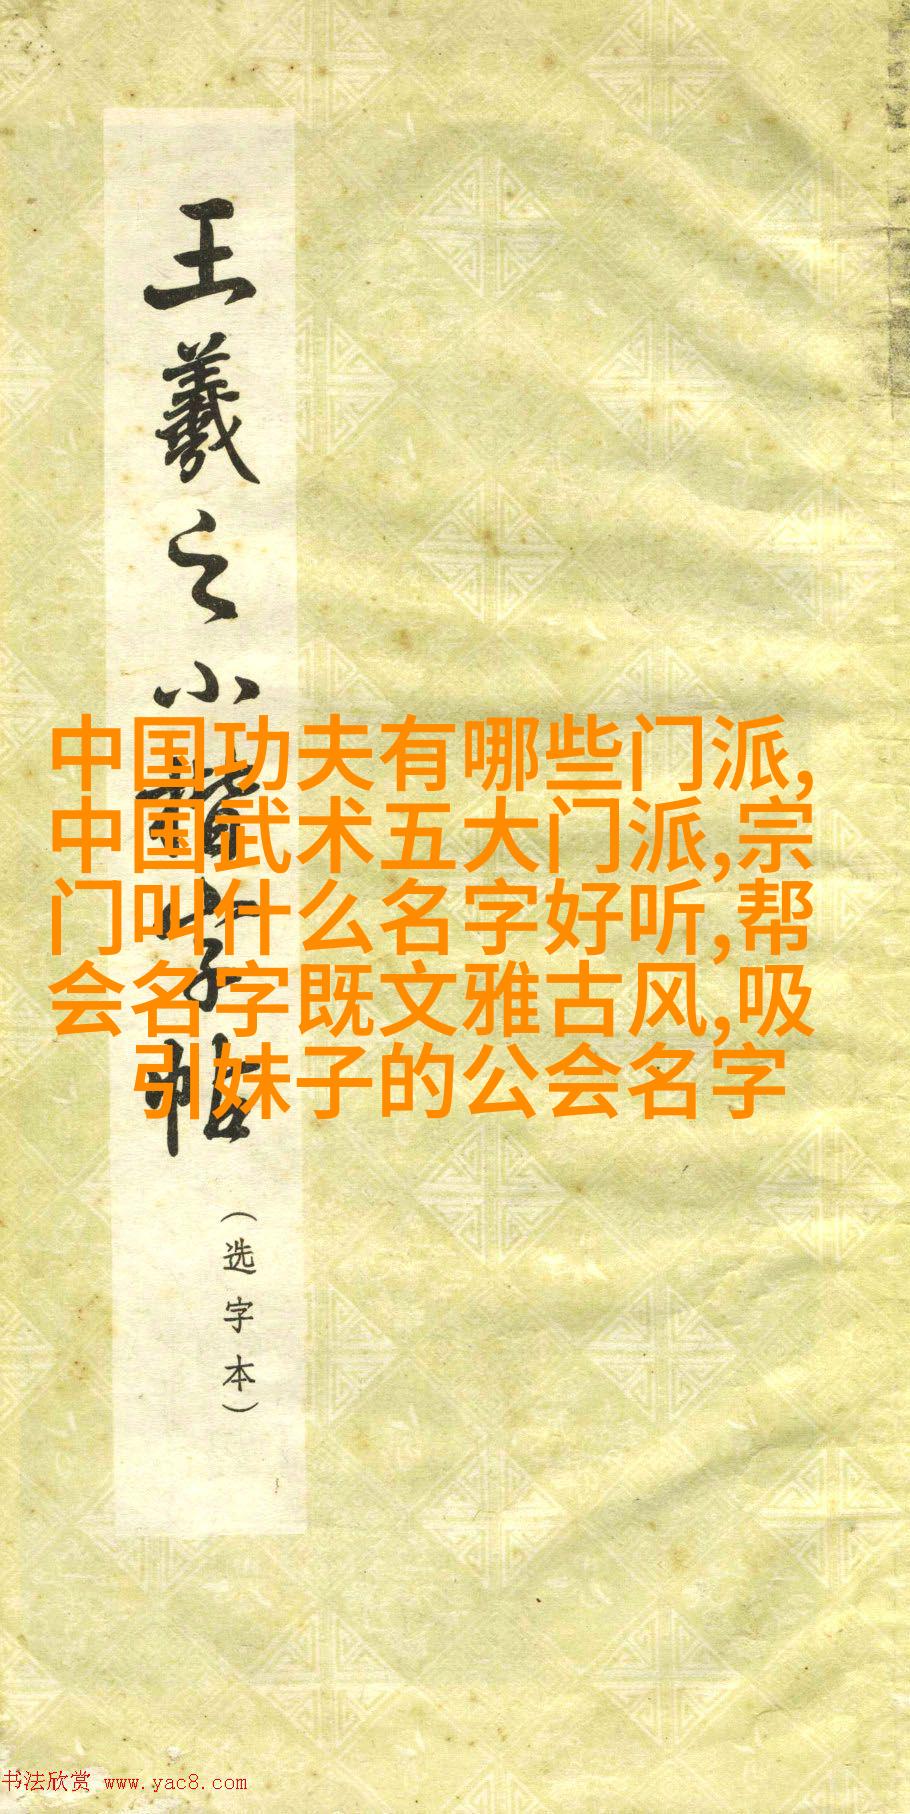 王羲之小楷字帖
（选字本）
中国功夫有哪些门派,
中国武术五大门派,宗
门叫什么名字好听,帮
会名字既文雅古风,吸
引妹子的公会名字
书法欣赏 www.yac8.com